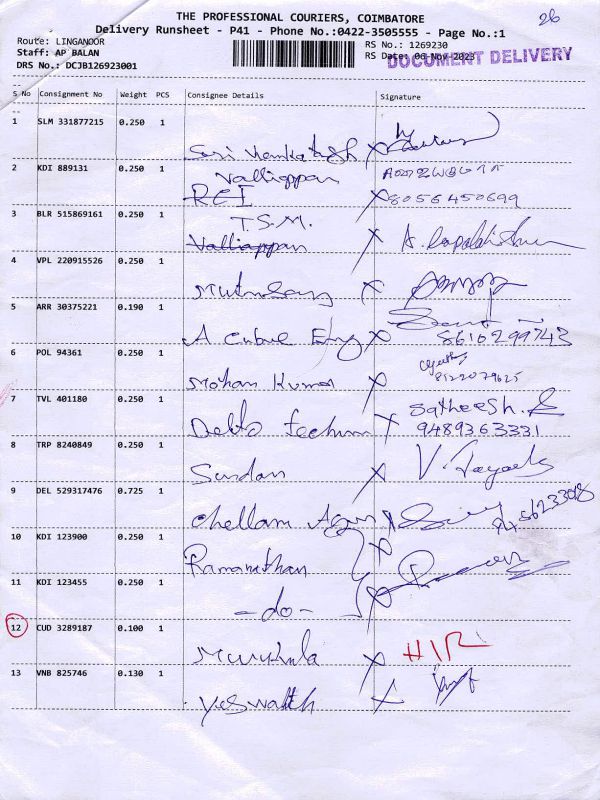 THE PROFESSIONAL COURIERS, COIMBATORE
26
Delivery Runsheet - P41 - Phone No.:0422-3505555 - Page No.:1
Route: LINGANOOR
RS No.: 1269230
Staff: AP BALAN
RS Date: 06 Nov 2023
DOCUMENT DELIVERY
DRS No.: DCJB126923001
S No Consignment No Weight PCS Consignee Details Signature
1 SLM 331877215 0.250 1
Sri Venkatesh X
2 KDI 889131 0.250 1
Valliappan
RCI X 8056450699
3 BLR 515869161 0.250 1
T.S.M.
Valliappan X
4 VPL 220915526 0.250 1
X
5 ARR 30375221 0.190 1
A X 8610299743
6 POL 94361 0.250 1
Mohan Kumar X 8122079625
7 TVL 401180 0.250 1
Satheesh.
Delta X 9489363331
8 TRP 8240849 0.250 1
Sundar X
9 DEL 529317476 0.725 1
Chellam X
10 KDI 123900 0.250 1
Ramanathan X
11 KDI 123455 0.250 1
-do- X
12 CUD 3289187 0.100 1
X HIR
13 VNB 825746 0.130 1
X